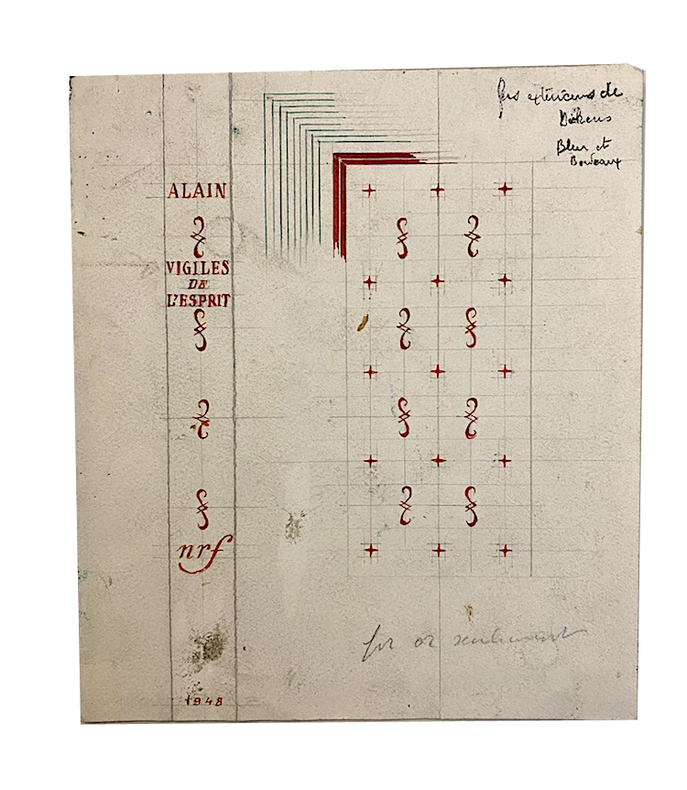 ALAIN
VIGILES
DE
L'ESPRIT
nrf
1948
fers extérieurs de
Bleu et
Bordeaux
fer or seulement